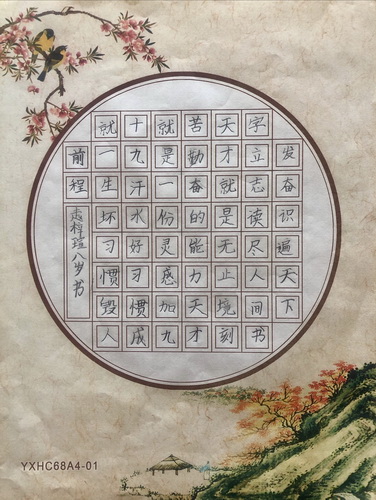 发奋识遍天下
字立志读尽人间书
天才就是无止境刻
苦勤奋的能力天才
就是一份灵感加九
十九汗水好习惯成
就一生坏习惯毁人
前程
梓瑄八岁书
YXHC68A4-01